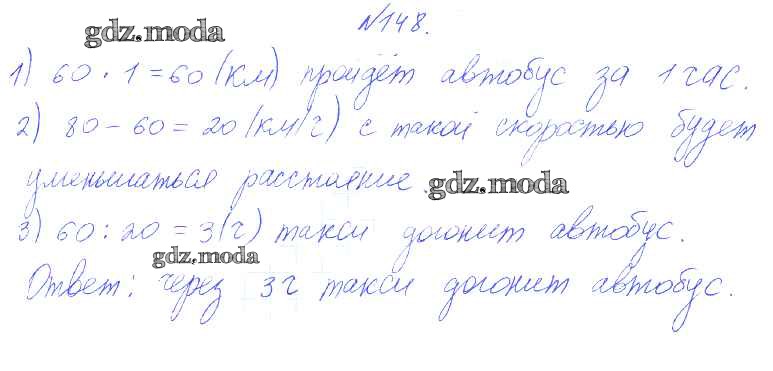 №148.
gdz.moda
1) 60 · 1 = 60 (км) пройдёт автобус за 1 час.
2) 80 – 60 = 20 (км/ч) с такой скоростью будет
уменьшаться расстояние.
gdz.moda
3) 60 : 20 = 3 (ч) такси догонит автобус.
gdz.moda
Ответ: через 3 ч такси догонит автобус.